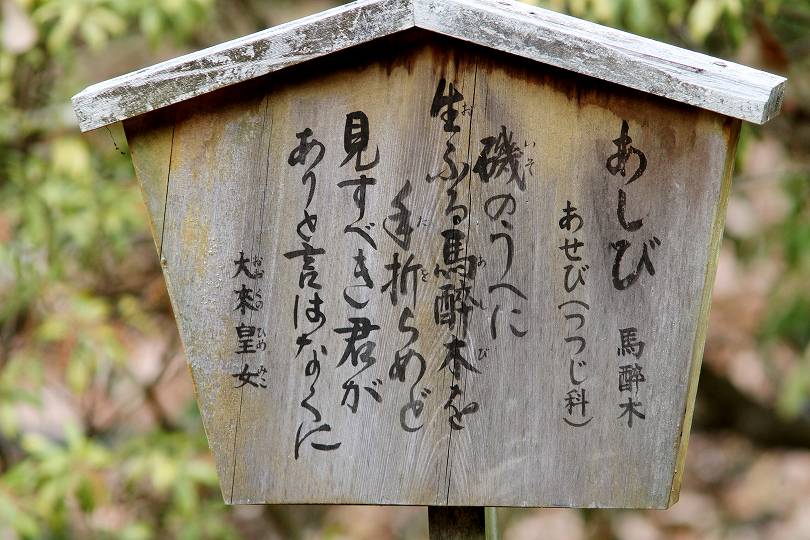 あしび 馬酔木
あせび(つつじ科)
磯のうへに
生ふる馬酔木を
手折らめど
見すべき君が
ありと言はなくに
大来皇女